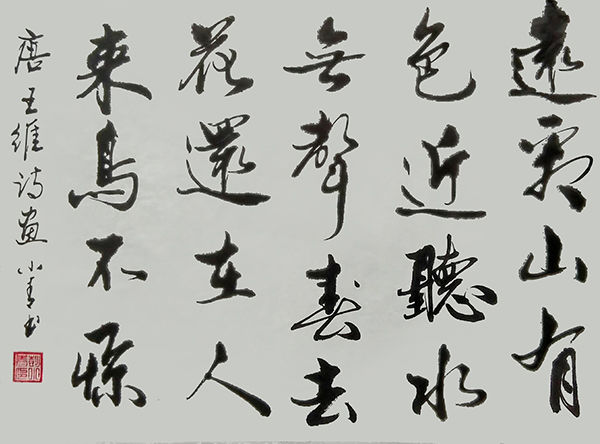 遠看山有
色近聽水
無聲春去
花還在人
来鳥不惊
唐王維诗畫小青书